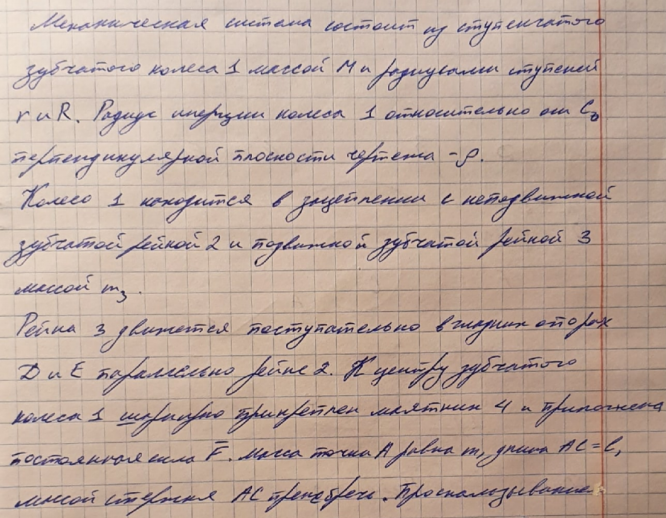 Механическая система состоит из ступенчатого
зубчатого колеса 1 массой М и радиусами ступеней
r и R. Радиус инерции колеса 1 относительно оси C,
перпендикулярной плоскости чертежа - ρ.
Колесо 1 находится в зацеплении с неподвижной
зубчатой рейкой 2 и подвижной зубчатой рейкой 3
массой m₃.
Рейка 3 движется поступательно в гладких опорах
D и E параллельно рейке 2. К центру зубчатого
колеса 1 шарнирно прикреплен маятник 4 и приложена
постоянная сила F̅. Масса точки A равна m, длина AC = l,
массой стержня AC пренебречь. Проскальзывание